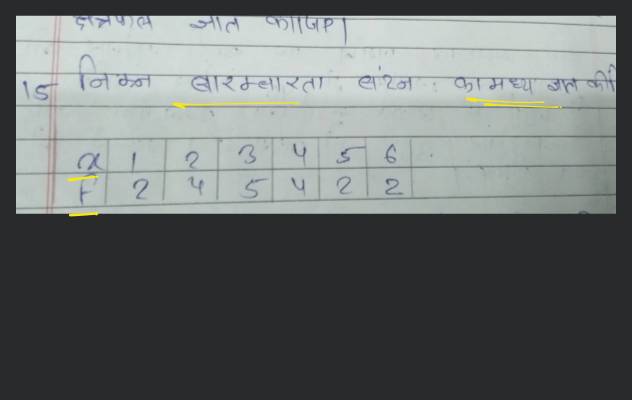 क्षेत्रफल ज्ञात कीजिए।
15 निम्न बारम्बारता बंटन का मध्य ज्ञात की
x 1 2 3 4 5 6
F 2 4 5 4 2 2